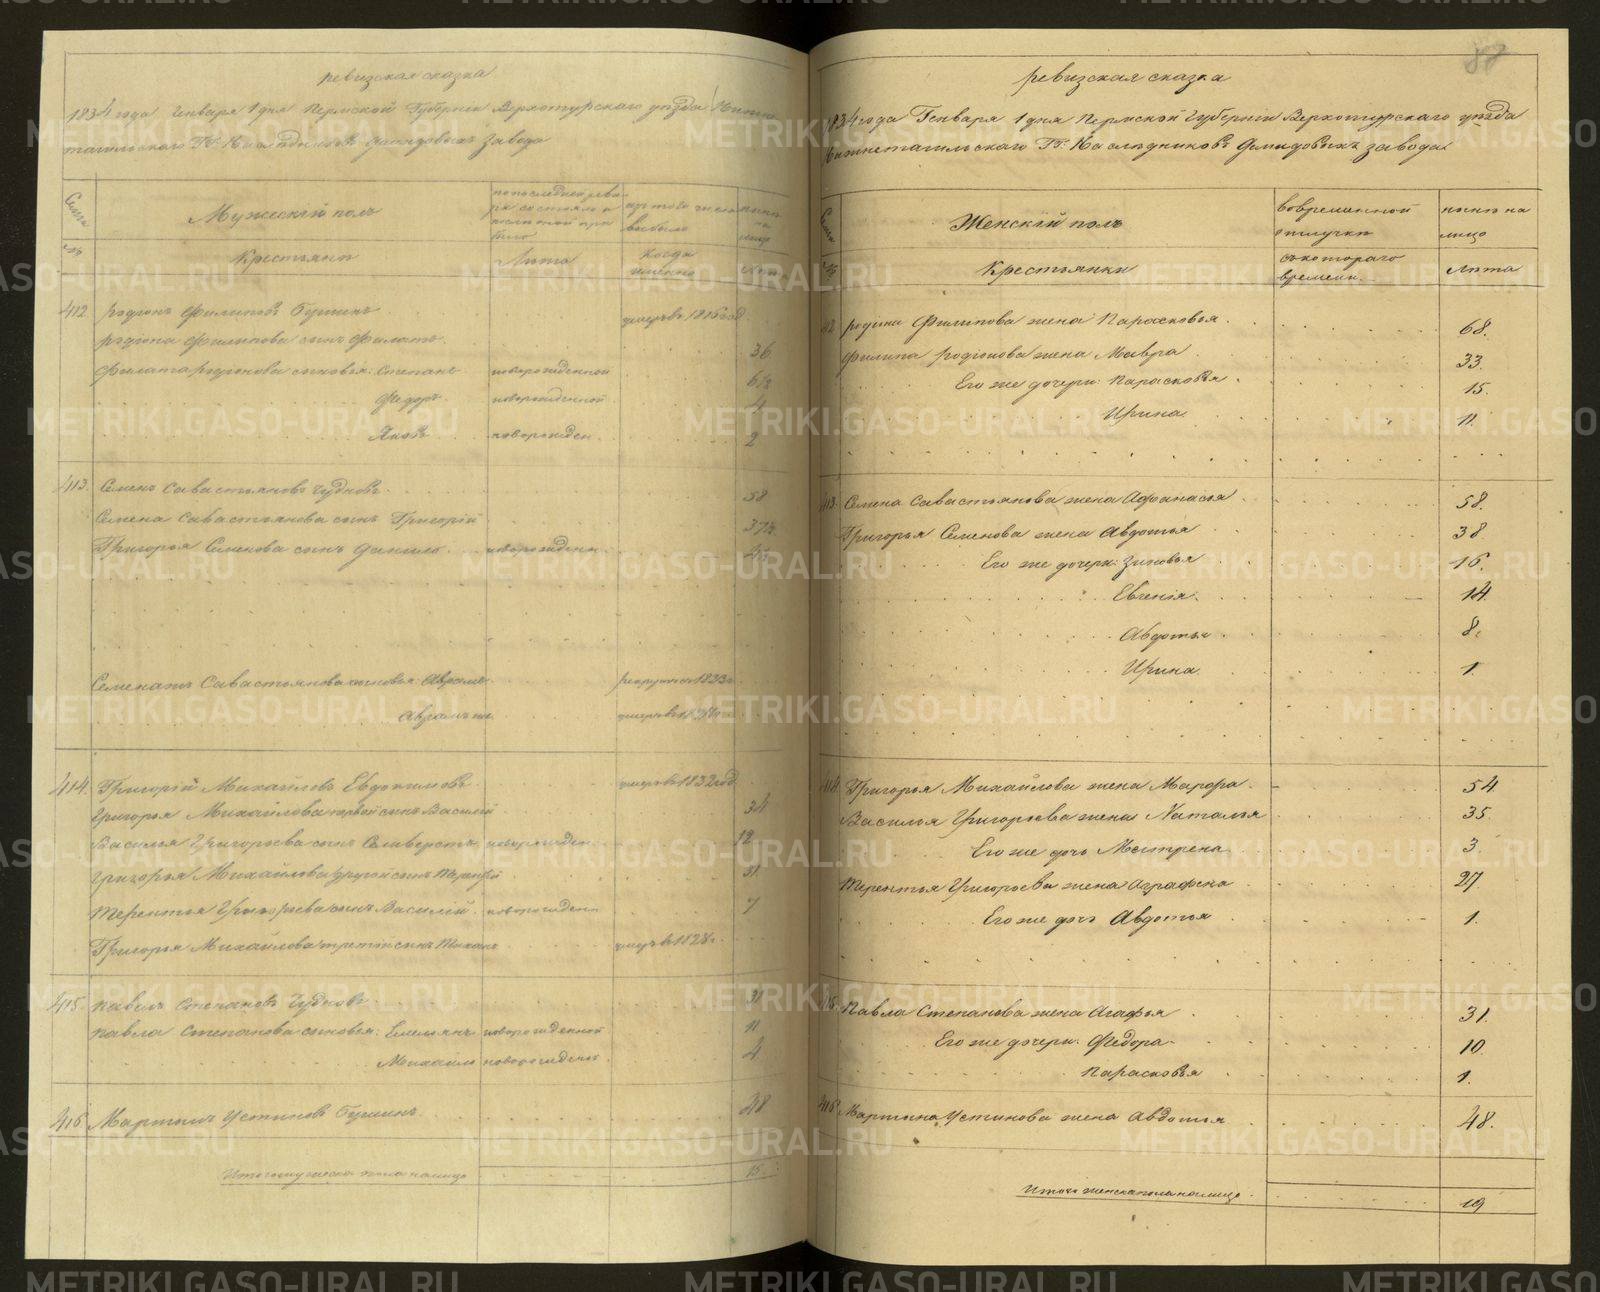 ревизская сказка
1834 года Генваря 1 дня Пермской Губернии Верхотурскаго уезда Нижне
тагильскаго Гг: Наследниковъ Демидовыхъ Завода
Мужескій полъ
по последней реви
зіи состояло и
после оной при
было
изъ того числа
выбыло
ныне
на
лицо
Крестьяне
Лета
Когда
именно
Лета
412 Родіонъ Филиповъ Бушинъ умеръ въ 1816 год
Родіона Филипова сынъ Филатъ 36
Филата Родіонова сыновья: Степанъ новорожденной 6½
Федоръ новорожденной 4
Яковъ новорожден 2
413. Семенъ Савастьяновъ Чудновъ 58
Семена Савастьянова сынъ Григорій 37½
Григорья Семенова сынъ Данило новорожден
Савастьянова сыновья Аврамъ рекрутъ 1823
умеръ въ
414. Григорій Михайловъ Евдокимовъ умеръ въ 1832 год
Григорья Михайлова первой сынъ Василій 34
Василья Григорьева сынъ Селиверстъ новорожден 12
Григорья Михайлова другой сынъ Терентій 31
Терентья Григорьева сынъ Василій новорожден 7
Григорья Михайлова третій сынъ умеръ въ 1828
415 Павелъ Степановъ Чудновъ 31
Павла Степанова сыновья: Емельянъ новорожденной 11
Михайло новорожденъ 4
416 Мартынъ Устиновъ Бушинъ 48
Итого мужеска пола на лицо 15
87
ревизская сказка
1834 года Генваря 1 дня Пермской Губерніи Верхотурскаго уезда
Нижнетагильскаго Гг: Наследниковъ Демидовыхъ завода
Женскій полъ
во временной
отлучки
ныне на
лицо
Крестьянки
съ котораго
времени
Лета
412 Родіона Филипова жена Парасковья 68.
Филипа Родіонова жена Мавра 33.
Его же дочери: Парасковья 15.
Ирина 11.
413. Семена Савастьянова жена Афанасья 58.
Григорья Семенова жена Авдотья 38
Его же дочери: Зиновья 16.
Евгенія. 14.
Авдотья 8.
Ирина 1.
414. Григорья Михайлова жена Марфа 54
Василья Григорьева жена Наталья 35.
Его же дочь Мастрена 3.
Терентья Григорьева жена Аграфена 27.
Его же дочь Авдотья 1.
415. Павла Степанова жена Агафья 31.
Его же дочери: Федора 10.
Парасковья 1.
416. Мартына Устинова жена Авдотья 48.
Итого женска пола на лицо 19
METRIKI.GASO-URAL.RU